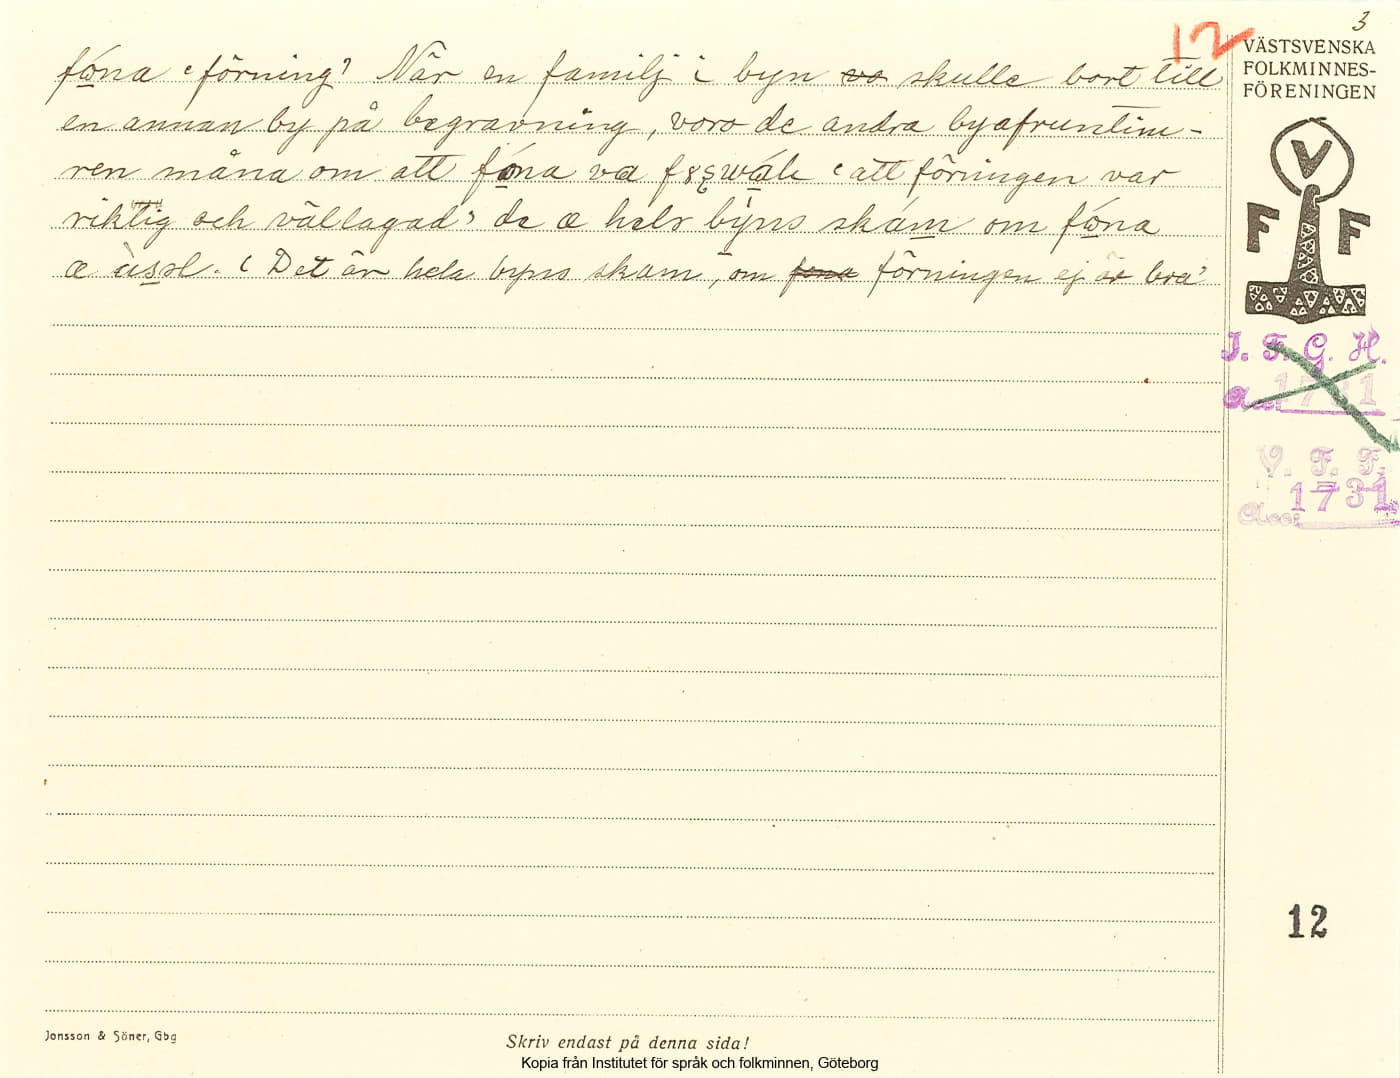 3
12
VÄSTSVENSKA
FOLKMINNES-
FÖRENINGEN
fóna ‘förning’ När en familj i byn vo skulle bort till
en annan by på begravning, voro de andra byafruntim-
ren måna om att fóna va ‘att förningen var
riktig och vällagad’ de æ hela býns skám om fóna
æ ùsәl. ‘Det är hela byns skam, om fona förningen ej är bra’
V
F F
I. F. G. H.
Acc. 1731
V. F. F.
Acc: 1731
12
Jonsson & Söner, Gbg
Skriv endast på denna sida!
Kopia från Institutet för språk och folkminnen, Göteborg